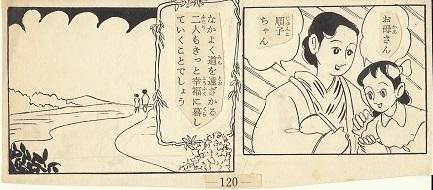 お母さん
順子ちゃん
なかよく道を遠ざかる
二人もきっと幸福に暮し
ていくことでしょう
120